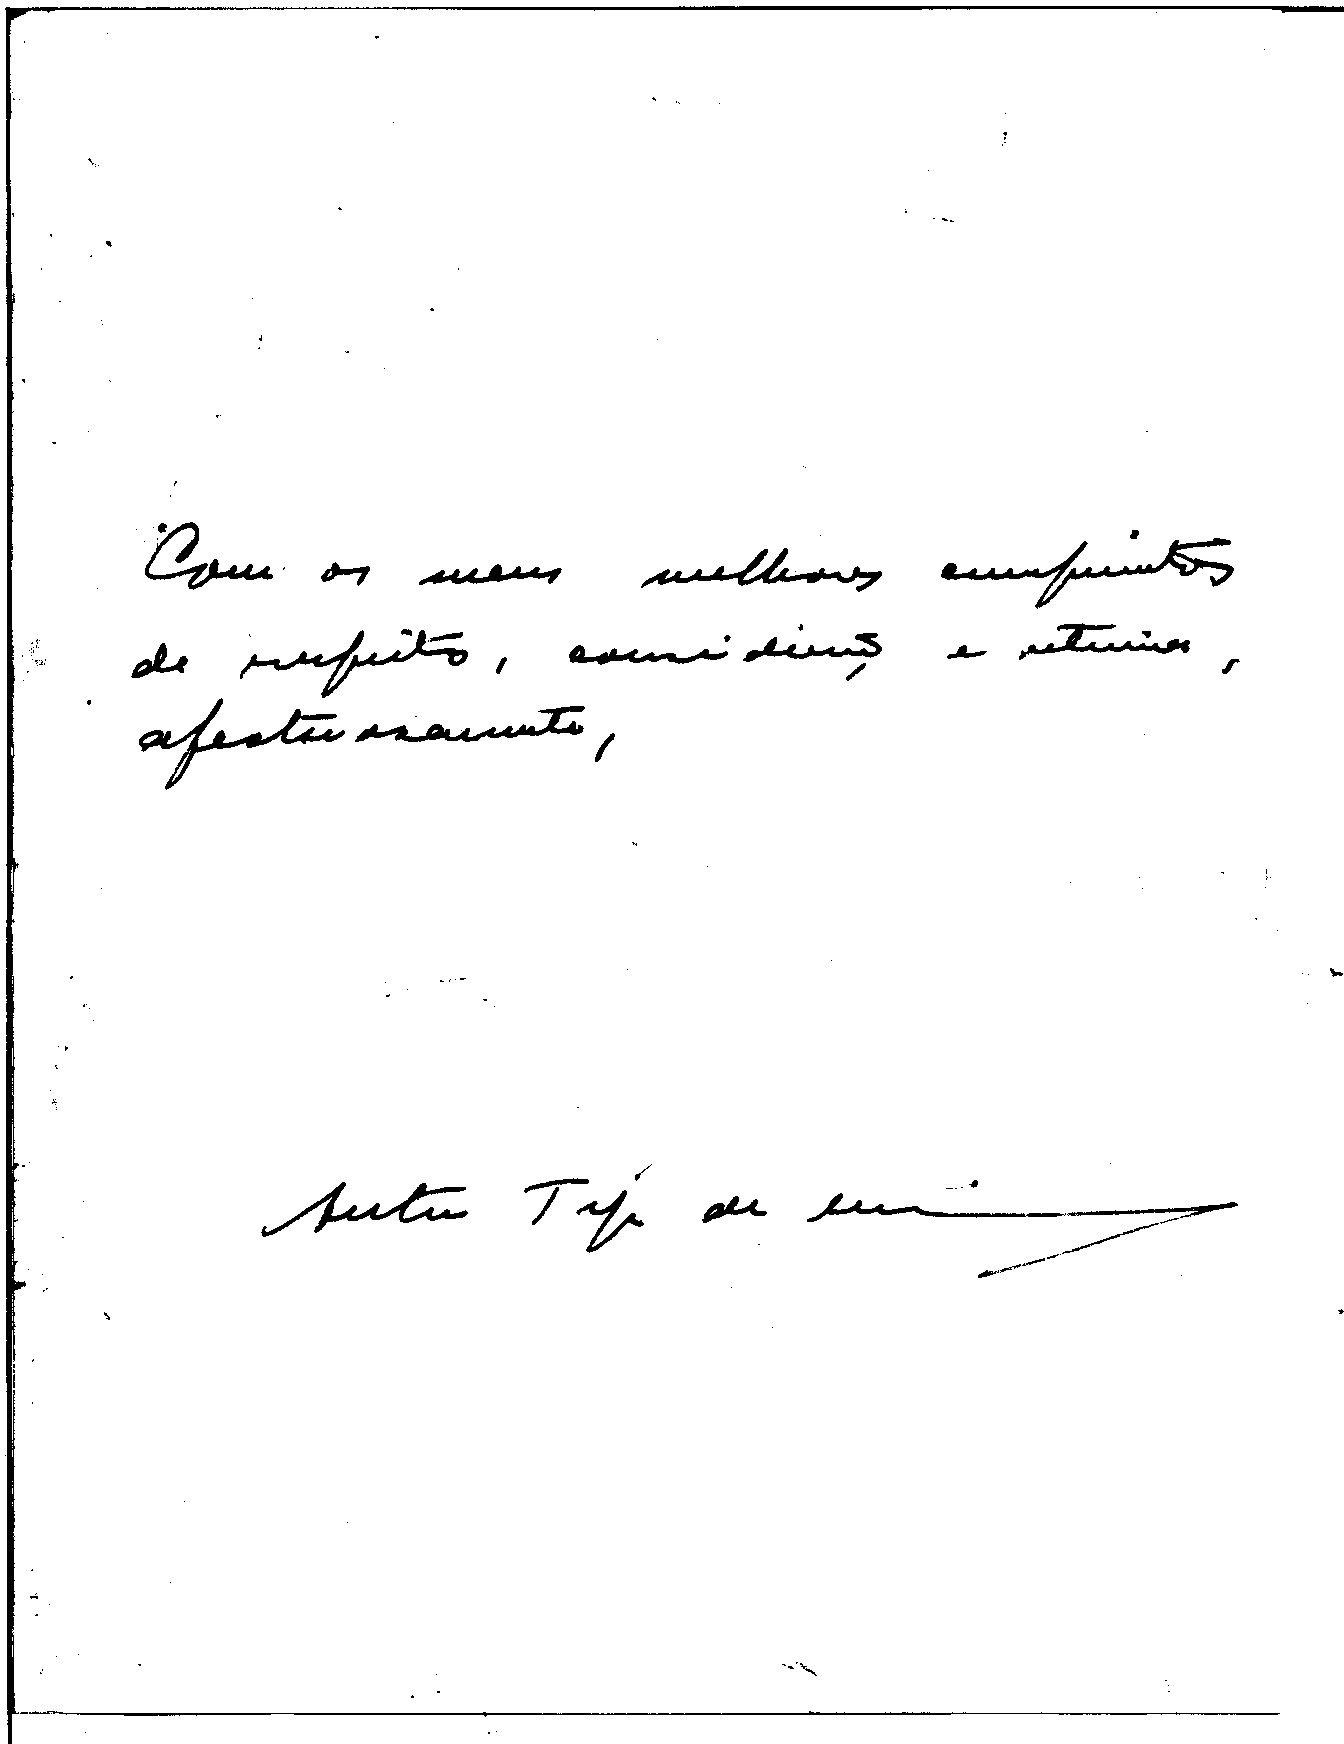 Com os meus melhores cumprimentos
de respeito, consideração e estima,
afectuosamente,